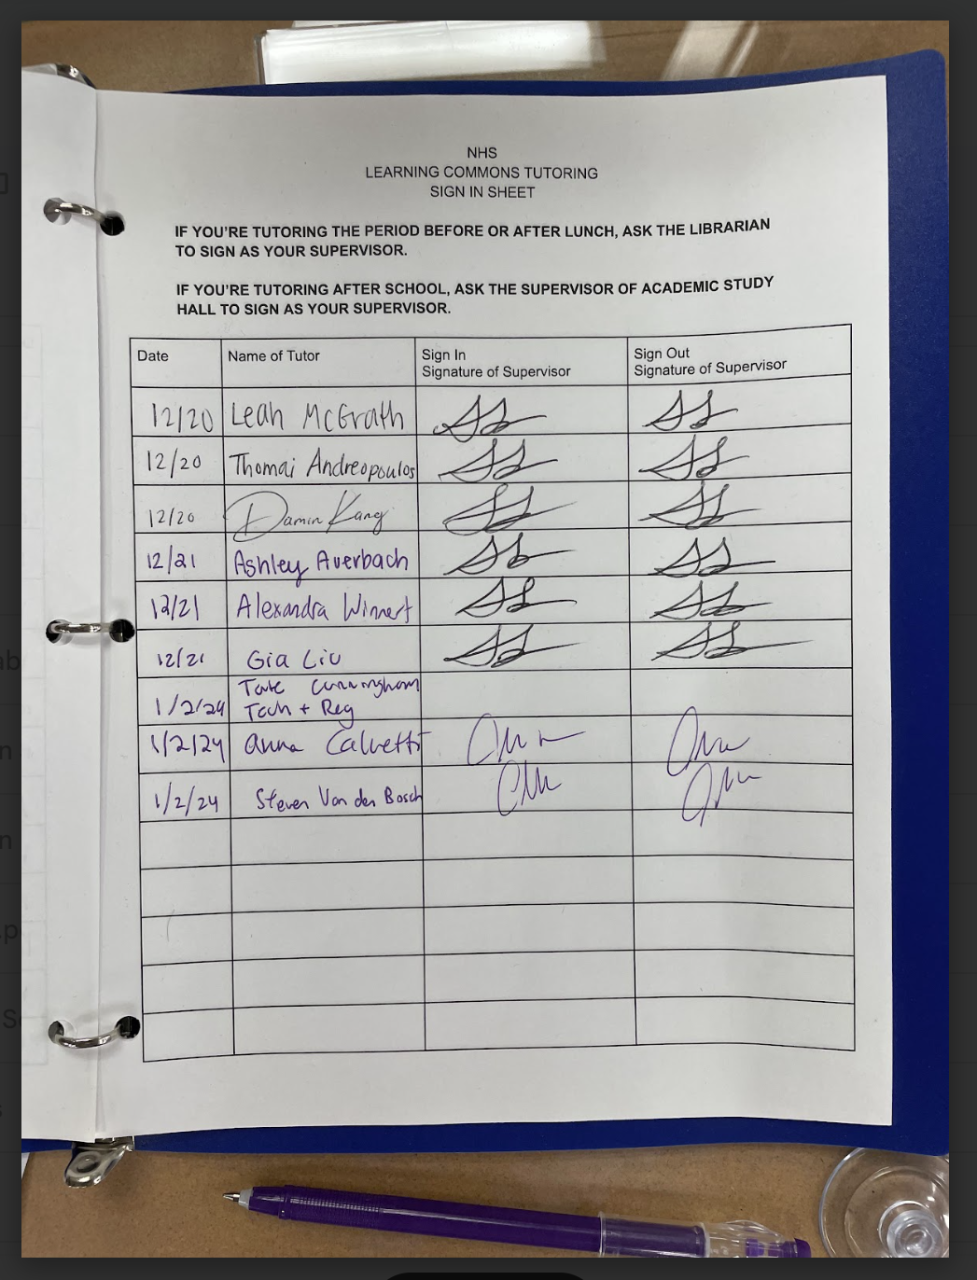 NHS
LEARNING COMMONS TUTORING
SIGN IN SHEET
IF YOU'RE TUTORING THE PERIOD BEFORE OR AFTER LUNCH, ASK THE LIBRARIAN
TO SIGN AS YOUR SUPERVISOR.
IF YOU'RE TUTORING AFTER SCHOOL, ASK THE SUPERVISOR OF ACADEMIC STUDY
HALL TO SIGN AS YOUR SUPERVISOR.
Date Name of Tutor Sign In Signature of Supervisor Sign Out Signature of Supervisor
12/20 Leah McGrath
12/20 Thomai Andreopoulos
12/20 Damin Kang
12/21 Ashley Averbach
12/21 Alexandra Winnert
12/21 Gia Liu
1/2/24 Tate Cunningham
Tech + Reg
1/2/24 anna Calvetti
1/2/24 Steven Van den Bosch